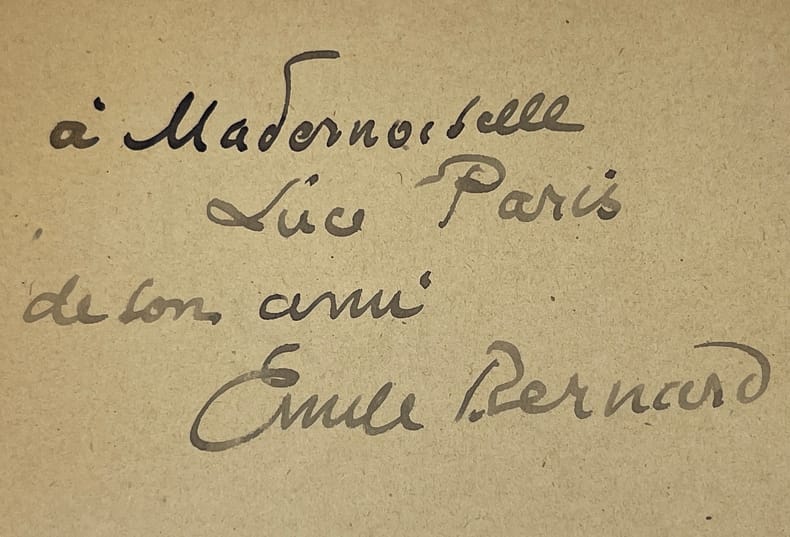 à Mademoiselle
Luce Paris
de son ami
Emile Bernard